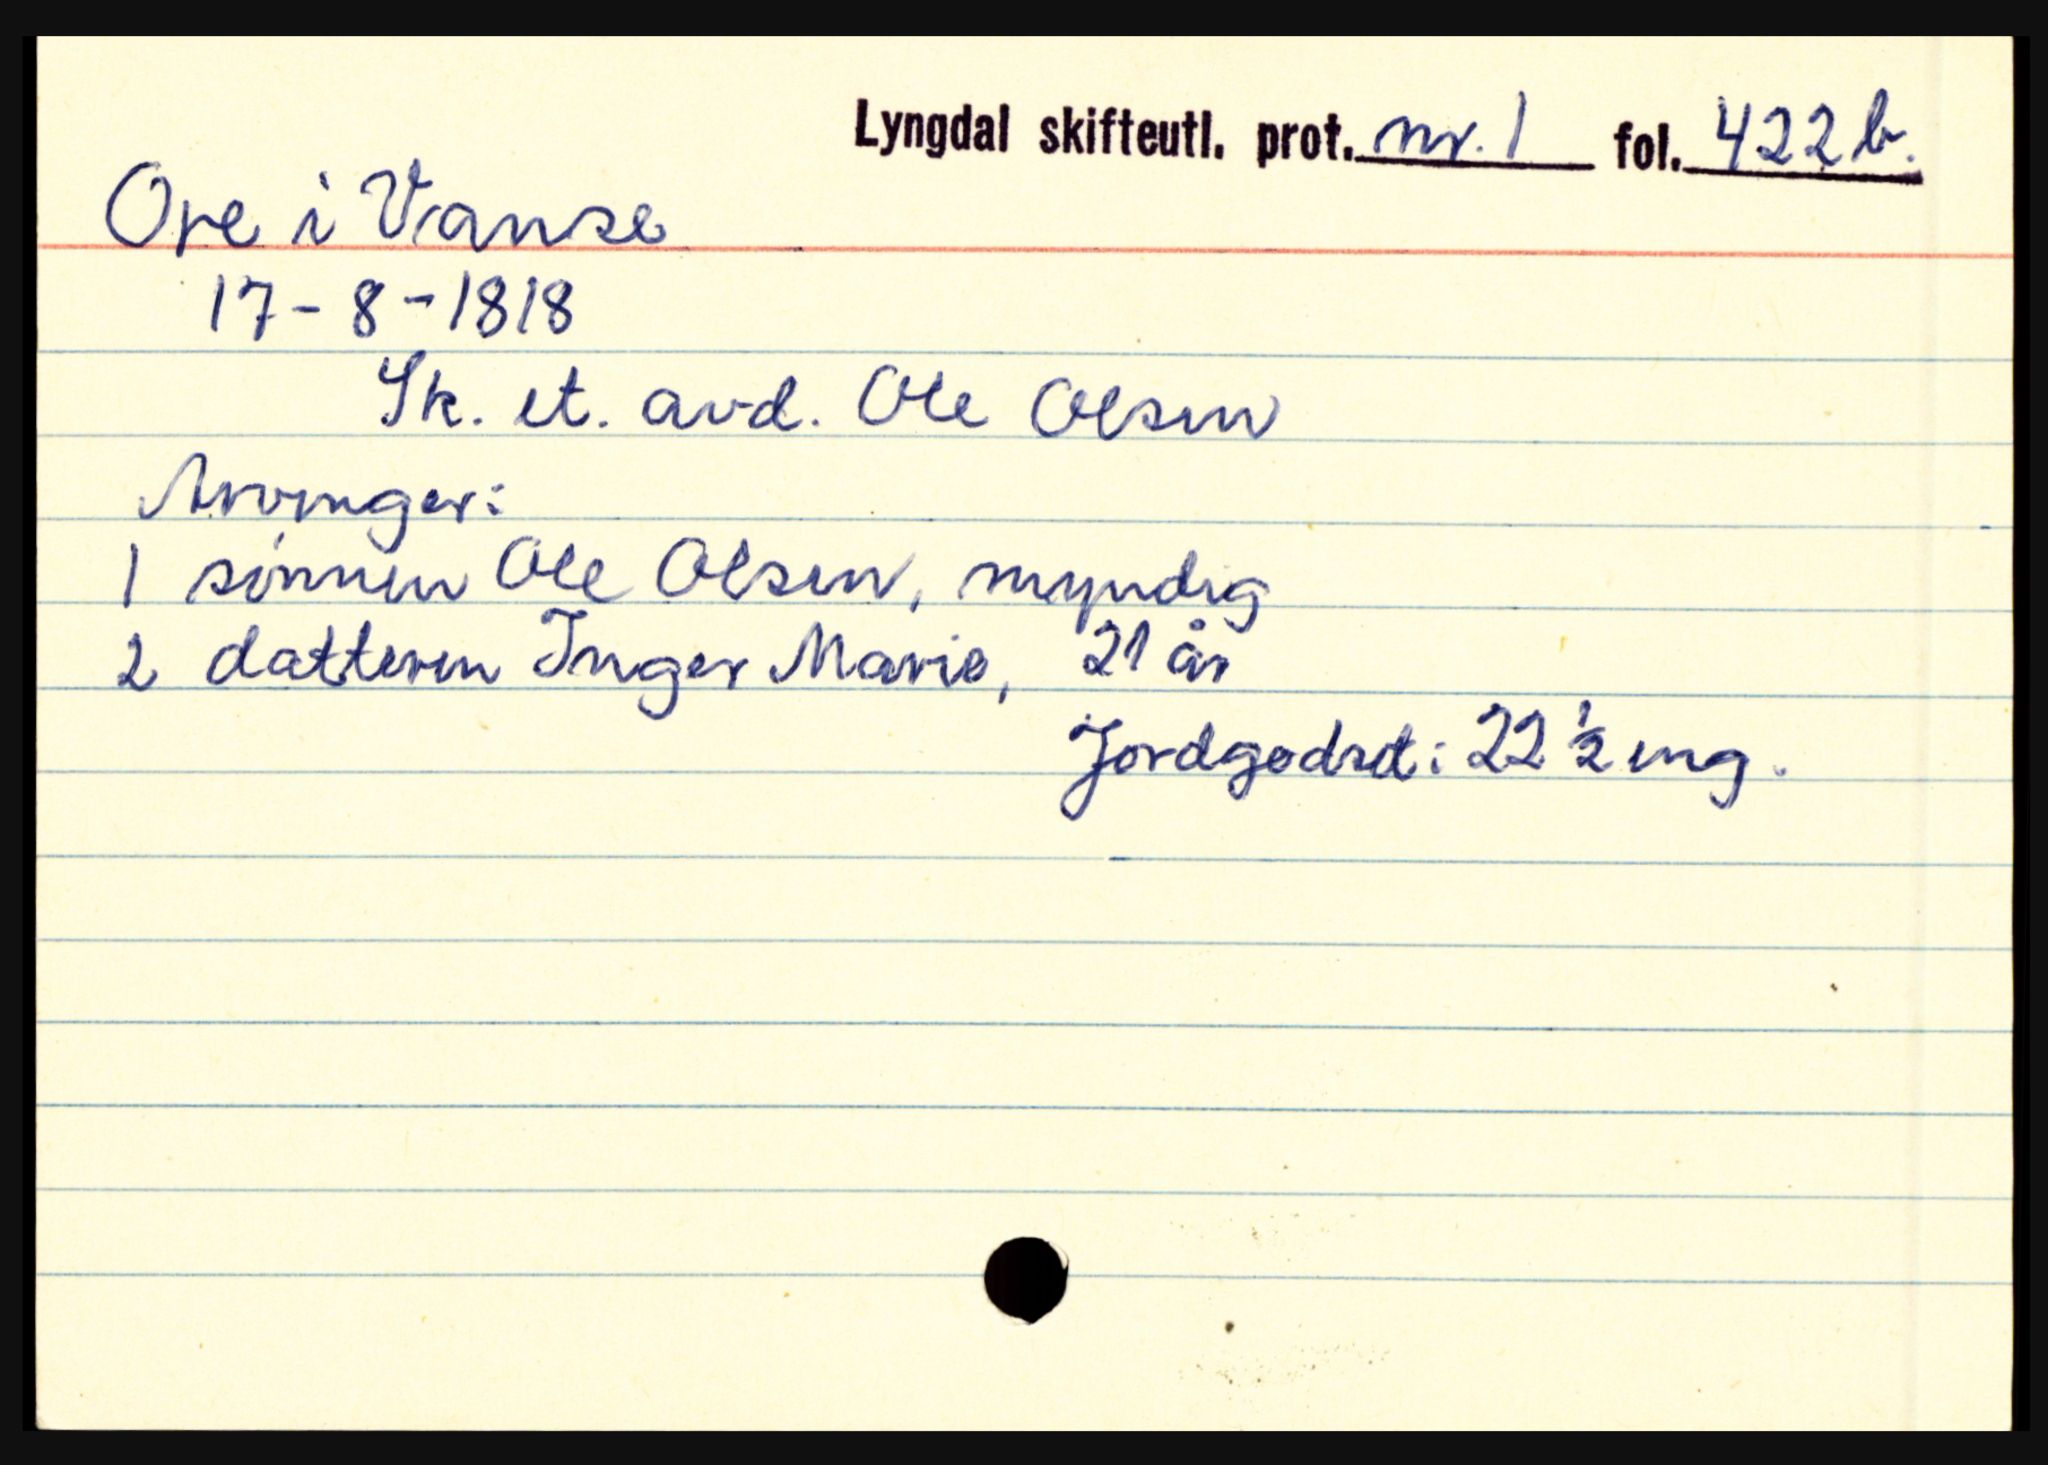 Lyngdal skifteutl. prot. nr. 1 fol. 422 b.
Ore i Vanse
17 - 8 - 1818
Sk. et. avd. Ole Olsen
Arvinger:
1 sønnen Ole Olsen, myndig
2 datteren Inger Marie, 21 år
Jordgodset: 22 ½ eng.